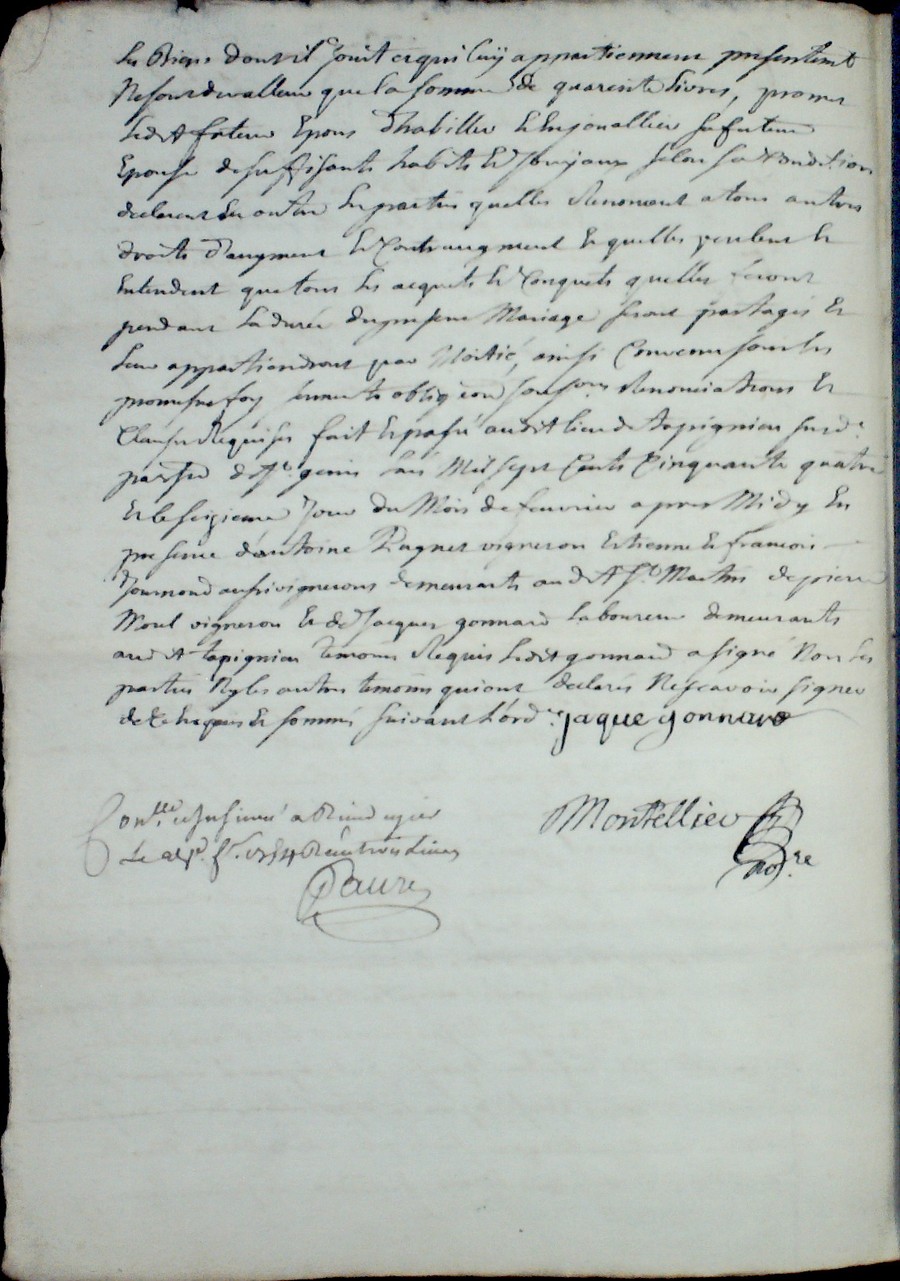 les Biens dont il Jouit et qui luy appartiennent presentemt
Ne sont de valleur que la somme de quarente Livres, promet
ledit futeur Epous d'habiller et Enjouallier sa future
Epouse de suffisants habits et Joujaux selon sa Condition
declarent En outre les parties quelles Renoncent a tous autres
droits d'augment et Contraugment Et quelles veulent et
Entendent que tous les acquets et Conquets quelles feront
pendant la durée du present Mariage seront partagés Et
leur appartiendront par Moitié, ainsi Convenu sous les
promesse foy serments obligeons Renonciations Et
Clauses Requises fait Et passé audit lieu de tapignieu susd.
parsse de st. genis Lan Mil sept Cents Cinquante quatre
Et le seizieme Jour du Mois de feuvrier apres Midy En
presence d'antoine vigneron Estienne Et francois
Journoud aussi vignerons demeurants aud st Martin de pierre
vigneron Et de Jacques gonnard Laboureur demeurants
audit tapignieu temoins Requis ledit gonnard a signé Non les
parties Ny les autres temoins qui ont declarés Ne scavoir signer
de ce Enquis Et sommés suivant L'ord. jaque gonnard
Contllé et Insinué a Rive de gier Montellier
Le 1754 Reçu trois Livres no.re
Faure